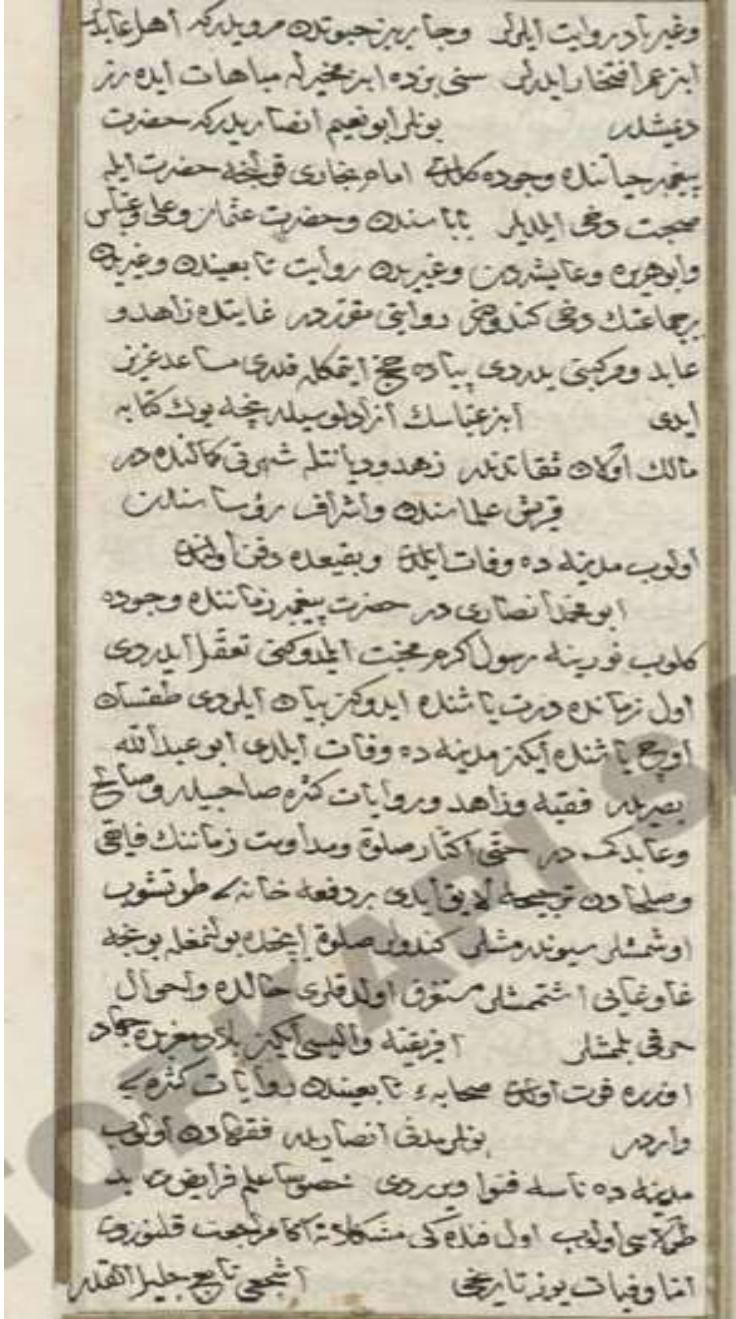 وغيرهادن روايت ايلدى وجابر بن حيوتدن مرويدركه اهل عابد
ابن عمرله افتخار ايلدى سز بزده ابن محيرزله مباهات ايده رز
دميشلر بونلر ابو نعيم انصاريدركه حضرت
پيغمبر حياتنده وجوده كلدى امام بخارى قولنجه حضرت ايله
صحبت دخى ايلديلر باباسندن وحضرت عثمان وعلى وعباس
وابوهريره وعايشه دن وغيريدن روايت تابعيندن وغيريدن
برجماعتك دخى كندودن روايتى مقرردر غايتده زاهد و
عابد ومركبى يدردى پياده حج ايتمكله قدرى مساعد عزيز
ايدى ابن عباسك آزادلوسيله نيجه بوك كتابه
مالك اولان ثقاتدندر زهد وديانتله شهرتى كمالنده در
قريش علماسندن واشراف رؤساسندن
اولوب مدينه ده وفات ايلدى وبقيعده دفن اولندى
ابو محمد انصارى در حضرت پيغمبر زماننده وجوده
كلوب نورينه رسول اكرم محبت ايلدوكنى تعقل ايدردى
اول زمانده درت ياشنده ايدوكن بيان ايلردى طقسان
اوچ ياشنده ايكن مدينه ده وفات ايلدى ابو عبد الله
بصريدر فقيه وزاهد وروايات كثره صاحبيدر وصالح
وعابد كمسه در حتى اكثار صلوة ومداومت زماننك فايقى
وصلحادن ترجيحه لايق ايدى بر دفعه خانه سى طوتشوب
اوشمشلر سيوندرمشلر كندولر صلوة ايچنده بولنمغله بو نيجه
غاوغايى اشتممشلر مستغرق اولدقلرى حالده واحوال
حرقى بلممشلر افريقيه واليسى ايكن بلاد مغربده جهاد
اوزره فوت اولدى صحابه و تابعيندن روايات كثره سى
واردر بونلر مدنى انصاريدر فقهادن اولوب
مدينه ده ناسه فتوا ويرردى خصوصا علم فرايض
اولوب اول فنده كى مشكلاته اكا مراجعت قلنوردى
اما وفيات يوز تاريخى اشجعى تابع جليل القدر